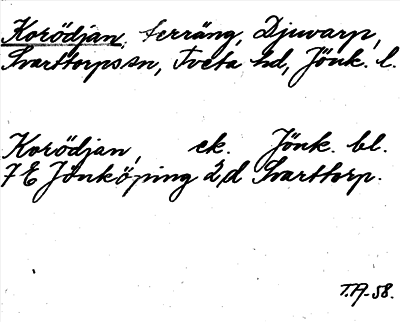 Korödjan, terräng, Djuvarp,
Svarttorps sn, Tveta hd, Jönk. l.
Korödjan, ek. Jönk. bl.
7E Jönköping 2,d Svarttorp.
T.A-58.